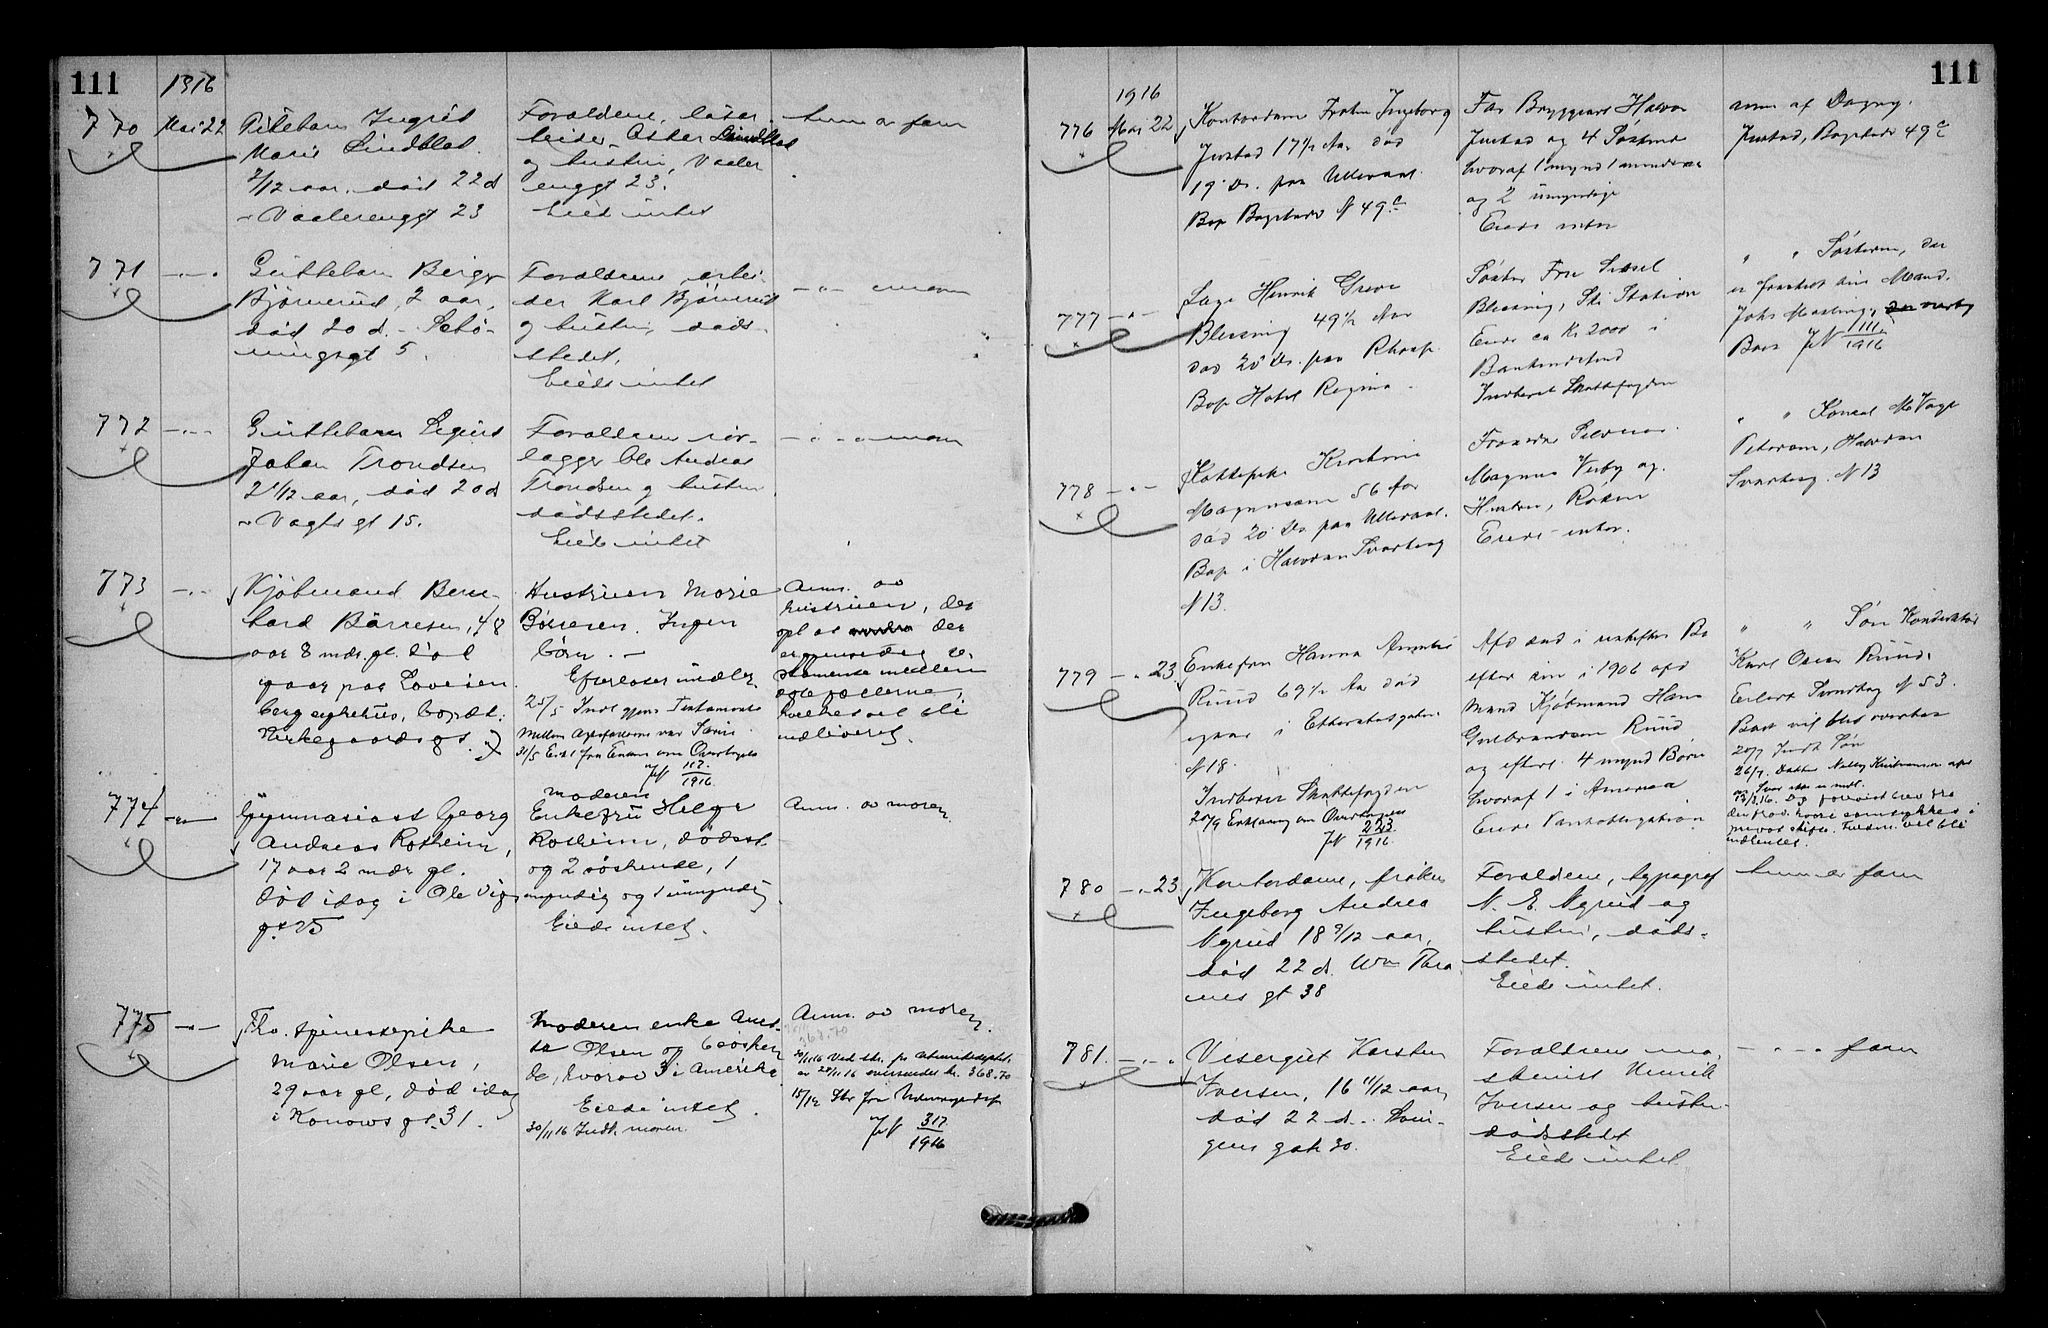 111
1916
770 Mai 22
Pikebarn Ingrid
Marie Lindblad
2/12 aar, død 22 d
Vaalerenggt 23
Forældrene, løsar
beider Oskar Lindblad
og hustru, Vaaler
enggt 23.
Eiede intet
Anm. av faren
771
Guttebarn Birger
Bjørnerud, 2 aar,
død 20 d. - Schø-
ningsgt 5.
Forældrene, arbei-
der Karl Bjørnerud
og hustru, døds-
stedet.
Eiede intet
moren
772
Guttebarn Sigurd
Johan Trondsen
2 1/12 aar, død 20 d
Vogts gt 15.
Forældrene rør-
lægger Ole Andreas
Trondsen og hustru
dødsstedet.
Eiede intet
moren
773
Kjøbmand Bern-
hard Børresen, 48
aar 8 mdr. gl. død
igaar paa Lovisen
berg sykehus, bopæl:
Kirkegaardsgt.
Hustruen Marie
Børresen. Ingen
børn. -
Efterlater midler.
25/5 Indl. gjens. Testamente
mellem Ægtefællerne
31/5 Erkl. fra Enken om Overtagelse
JN 117/1916
Anm. av
hustruen, der
opl. at der
er gjensidig te-
stamente mellem
ægtefællerne,
hvilket vil bli
indleveret.
774
Gymnasiast Georg
Andreas Rotheim,
17 aar 2 mdr gl.
død idag i Ole Vigs
gt 25
moderen
Enkefru Helga
Rotheim, dødsst.
og 2 søskende, 1
myndig og 1 umyndig
Eiede intet.
Anm. av moren
775
Fhv. spinnerpike
Marie Olsen,
29 aar gl, død idag
i Konows gt. 31.
Moderen enke
Olsen og 6 søsken
de, hvorav 3 i Amerika
Eiede intet.
30/11 16 Indk. moren.
Anm. av moren.
368.70
20/11 16 Ved skr. fr.
er 28/11 16 oversendt kr. 368.70
15/12 Skr. fra
JN 317/1916
111
1916
776 Mai 22
Kontordame Frøken Ingeborg
Justad 17 1/2 Aar død
19 ds. paa Ullevaal.
Bop Bogstadv N 49 c
Far Bryggearb Halvor
Justad og 4 Søskende
hvoraf 1 mynd 1 mindreaar
og 2 umyndige
Eiede intet
anm af Dagny
Justad, Bogstadv 49 c
777
Læge Henrik Greve
Blessing 49 1/2 Aar
død 20 ds. paa Rhosp.
Bop Hotel Regina.
Søster Fru Sissel
Blessing, Ski Station
Eiede ca Kr 2000 i
Bankindskud
Indberet Skattefogden
" " Søsteren, der
er fraskilt sin Mand.
Johs
Boet JN 111/1916
778
Kokkepike Kristine
Magnussen 56 Aar
død 20 ds paa Ullevaal.
Bop i Halvdan Svartesg
N 13.
Magnus Verby og
Hustru, Røken
Eiede intet.
" " Konsul
Petersen, Halvdan
Svartesg. N 13
779 23
Enkefru Hanna
Ruud 69 1/2 Aar død
igaar i Eilert Sundtsgaten
N 18.
Indberet Skattefogden
20/9 Erklæring om Overtagelse
JN 223/1916
Afd sad i uskiftet Bo
efter sin i 1906 afd
Mand Kjøbmand Hans
Gulbrandsen Ruud
og efterl. 4 mynd Børn
hvoraf 1 i Amerika
Eiede Pantobligation
" " Søn Konduktør
Karl Oscar Ruud,
Eilert Sundtsg N 53.
Boet vil bli overtat
20/7 Indk Søn
26/7. Datter Nelly
indhentes.
780 23
Kontordame, frøken
Ingeborg Andrea
Nyrud 18 9/12 aar,
død 22 d. Wm Thra
nes gt 38
Forældrene, typograf
N. E. Nyrud og
hustru, døds-
stedet.
Eiede intet.
Anm av faren
781.
Visergut Karsten
Iversen, 16 11/12 aar,
død 22 d.. Svin-
gens gate 30.
Forældrene ma-
skinist Henrik
Iversen og hustru
dødsstedet
Eiede intet.
faren